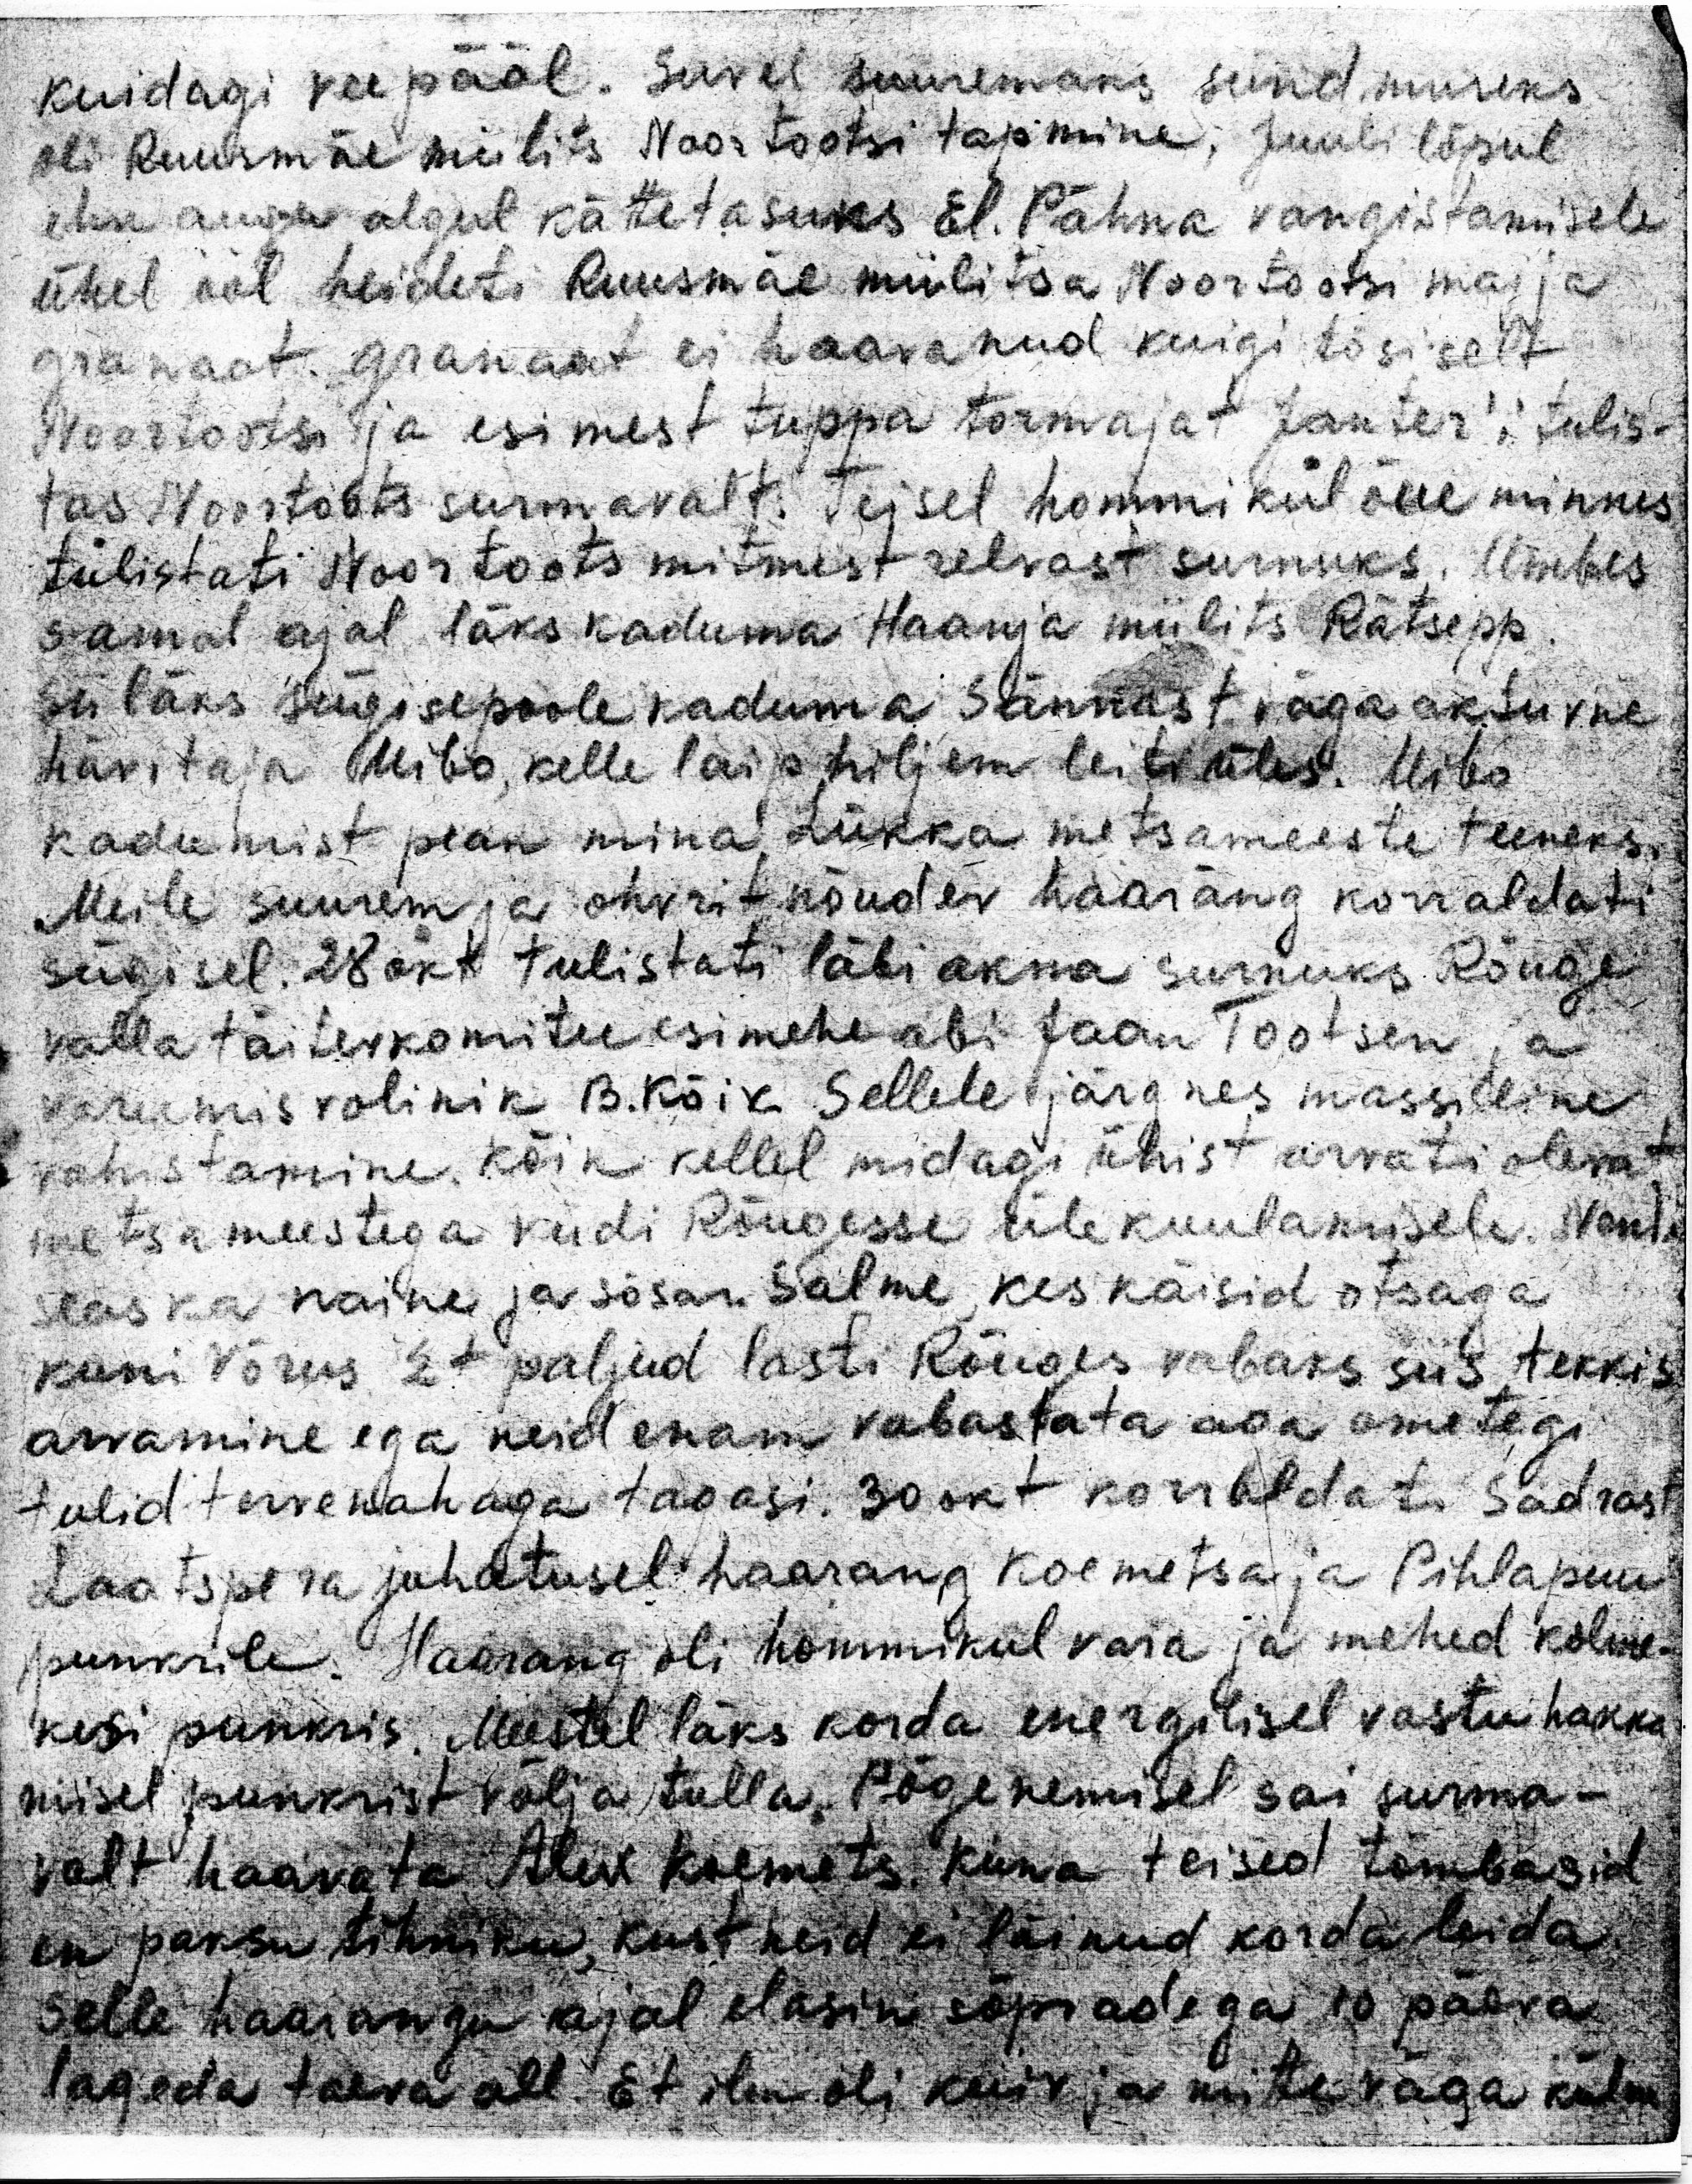 kuidagi vee pääl. Suvel suuremaks sündmuseks
oli Ruusmäe miilits Noortootsi tapmine, Juuli lõpul
ehk augu algul kättetasuks El. Pähna vangistamisele
ühel ööl heideti Ruusmäe miilitsa Noortootsi majja
granaat. Granaat ei haavanud kuigi tõsiselt
Noortootsi ja esimest tuppa tormajat Janter'i tulis-
tas Noortoots surmavalt. Teisel hommikul õue minnes
tulistati Noortoots mitmest relvast surnuks. Umbes
samal ajal läks kaduma Haanja miilits Rätsepp.
Siis läks sügisepoole kaduma Sännast väga aktiivne
hävitaja Uibo, kelle laip hiljem leiti üles. Uibo
kadumist pean mina Lükka metsameeste teeneks.
Meile suurem ja ohvrit nõudev haarang korraldati
sügisel. 28 okt tulistati läbi akna surnuks Rõuge
valla täitevkomitee esimehe abi Jaan Tootsen ja
varumisvolinik B. Kõiv. Sellele järgnes massiline
vahistamine. Kõik kellel midagi ühist arvati olevat
metsameestega viidi Rõugesse ülekuulamisele. Nende
seas ka naine ja sõsar Salme, kes käisid otsaga
kuni Võrus Et paljud lasti Rõuges vabaks siis tekkis
arvamine ega neid enam vabastata aga ometegi
tulid tervenahaga tagasi. 30 okt korraldati Sadrast
Laatspera juhatusel haarang Koemetsa ja Pihlapuu
punkrile. Haarang oli hommikul vara ja mehed kolme-
kesi punkris. Meestel läks korda energilisel vastuhakka
misel punkrist välja tulla. Põgenemisel sai surma-
valt haavata Alex Koemets. Kuna teised tõmbasid
en paksu tihniku, kust neid ei läinud korda leida.
Selle haarangu ajal elasin sõpradega 10 päeva
lageda taeva all. Et ilm oli kuiv ja mitte väga külm